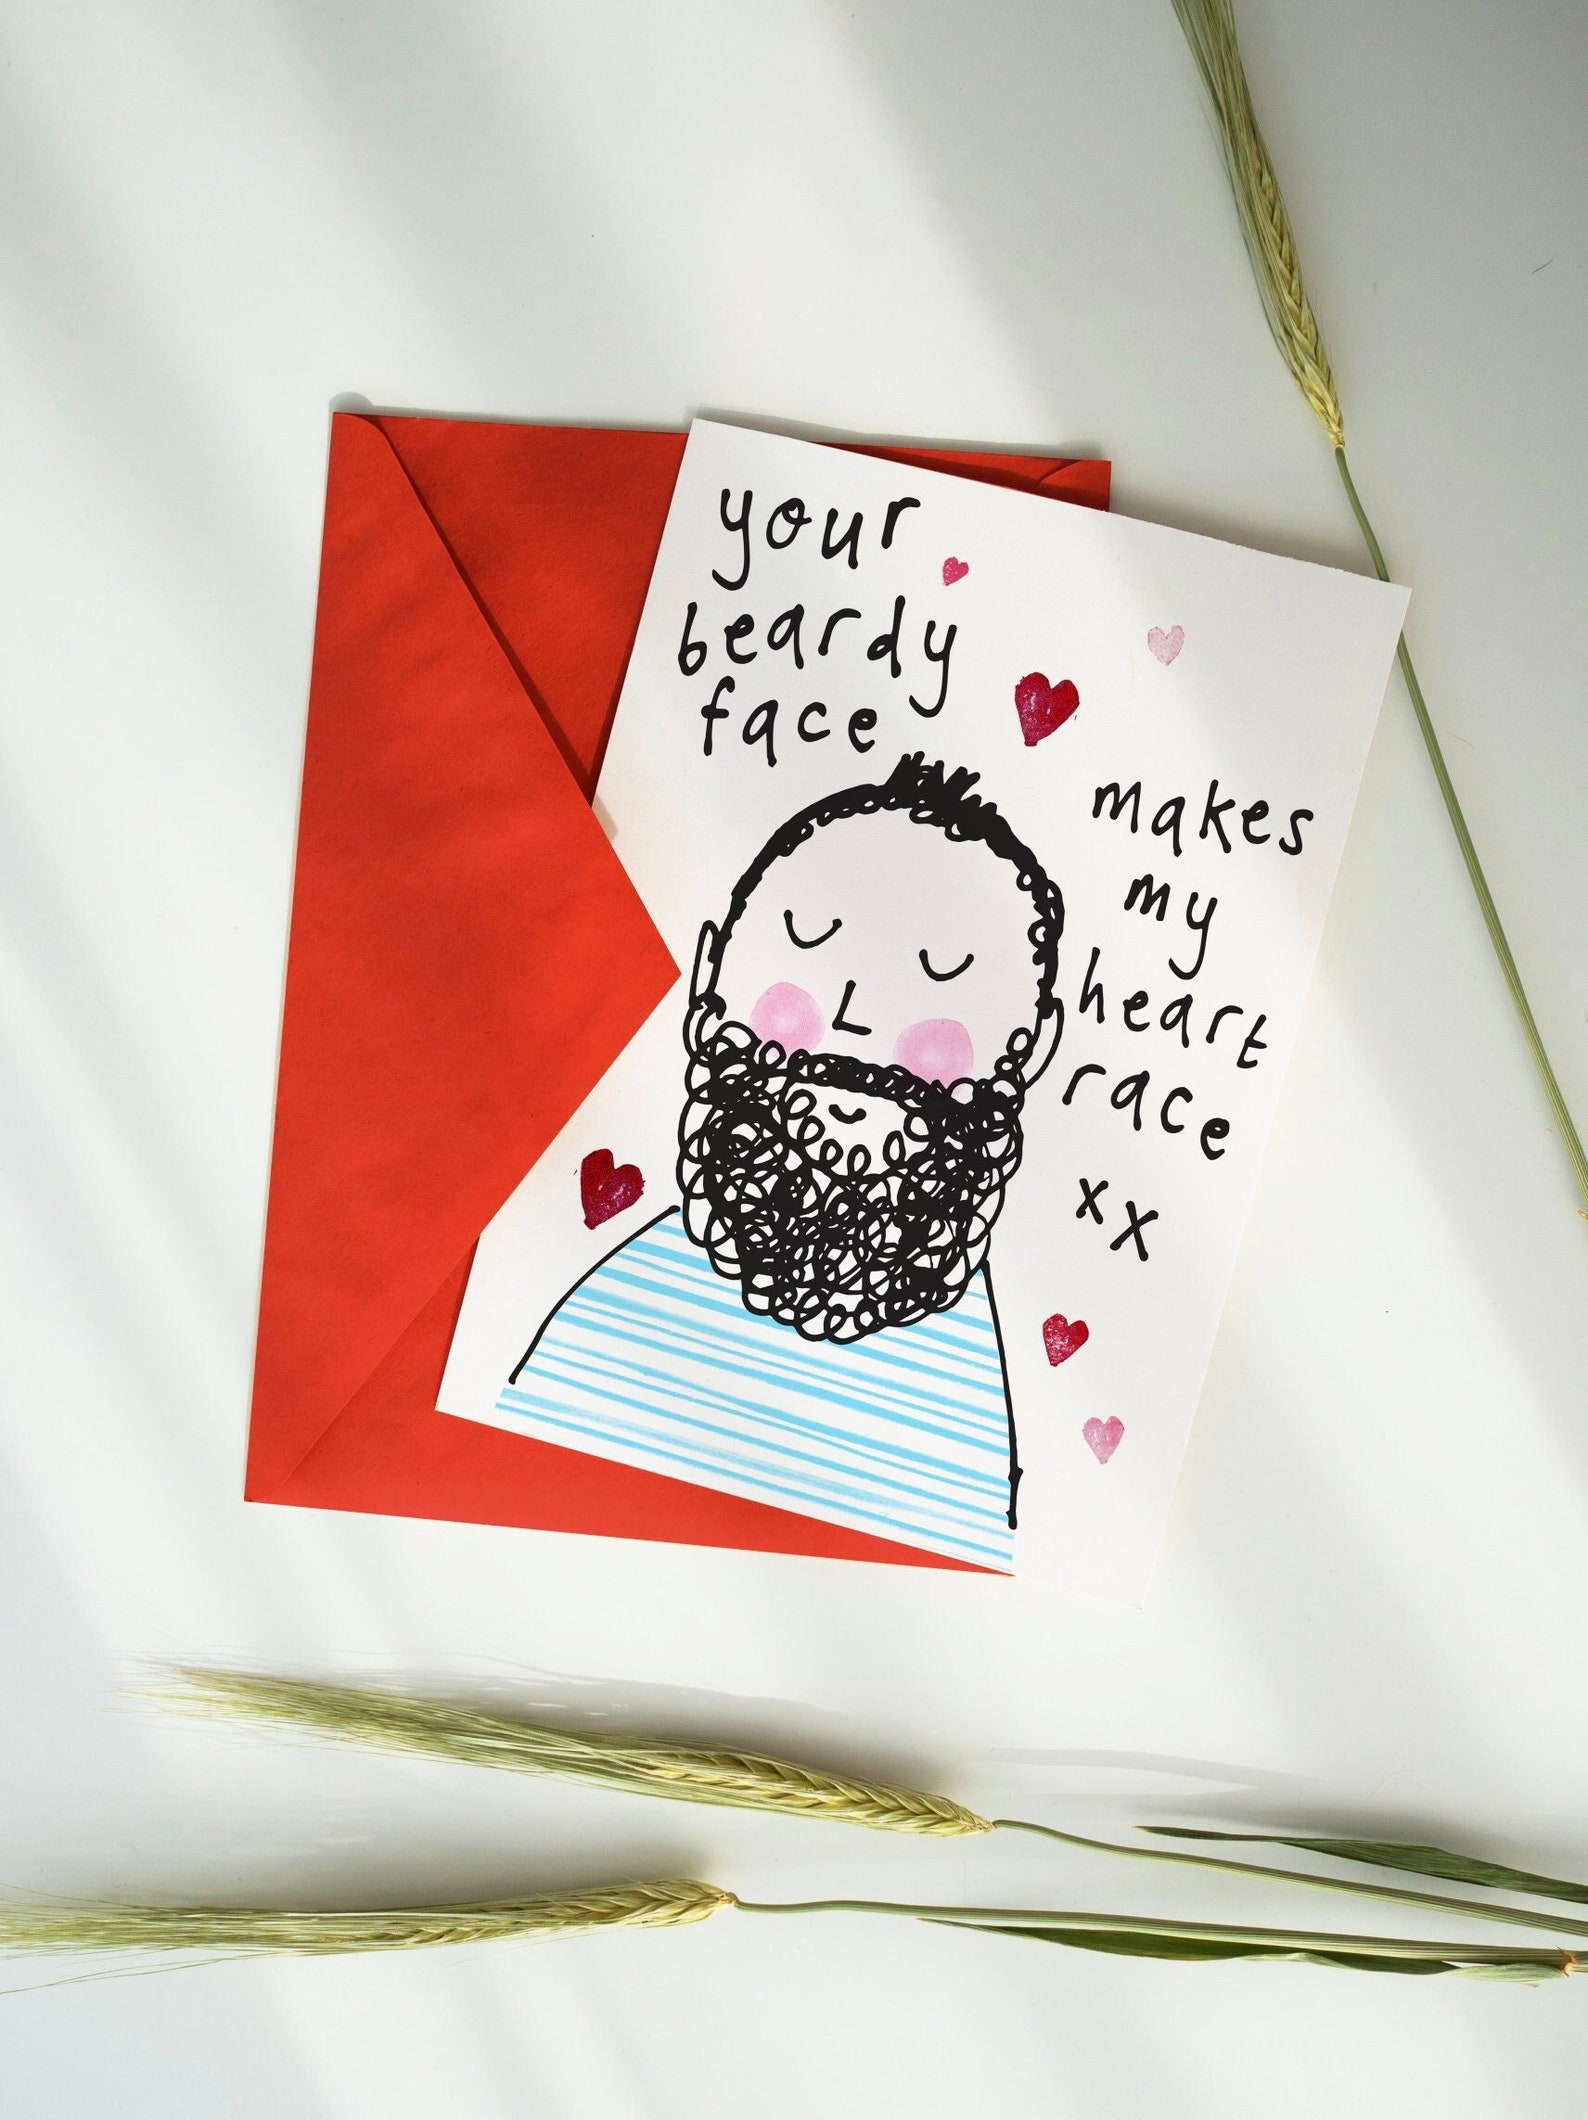 your
beardy
face
makes
my
heart
race
xx